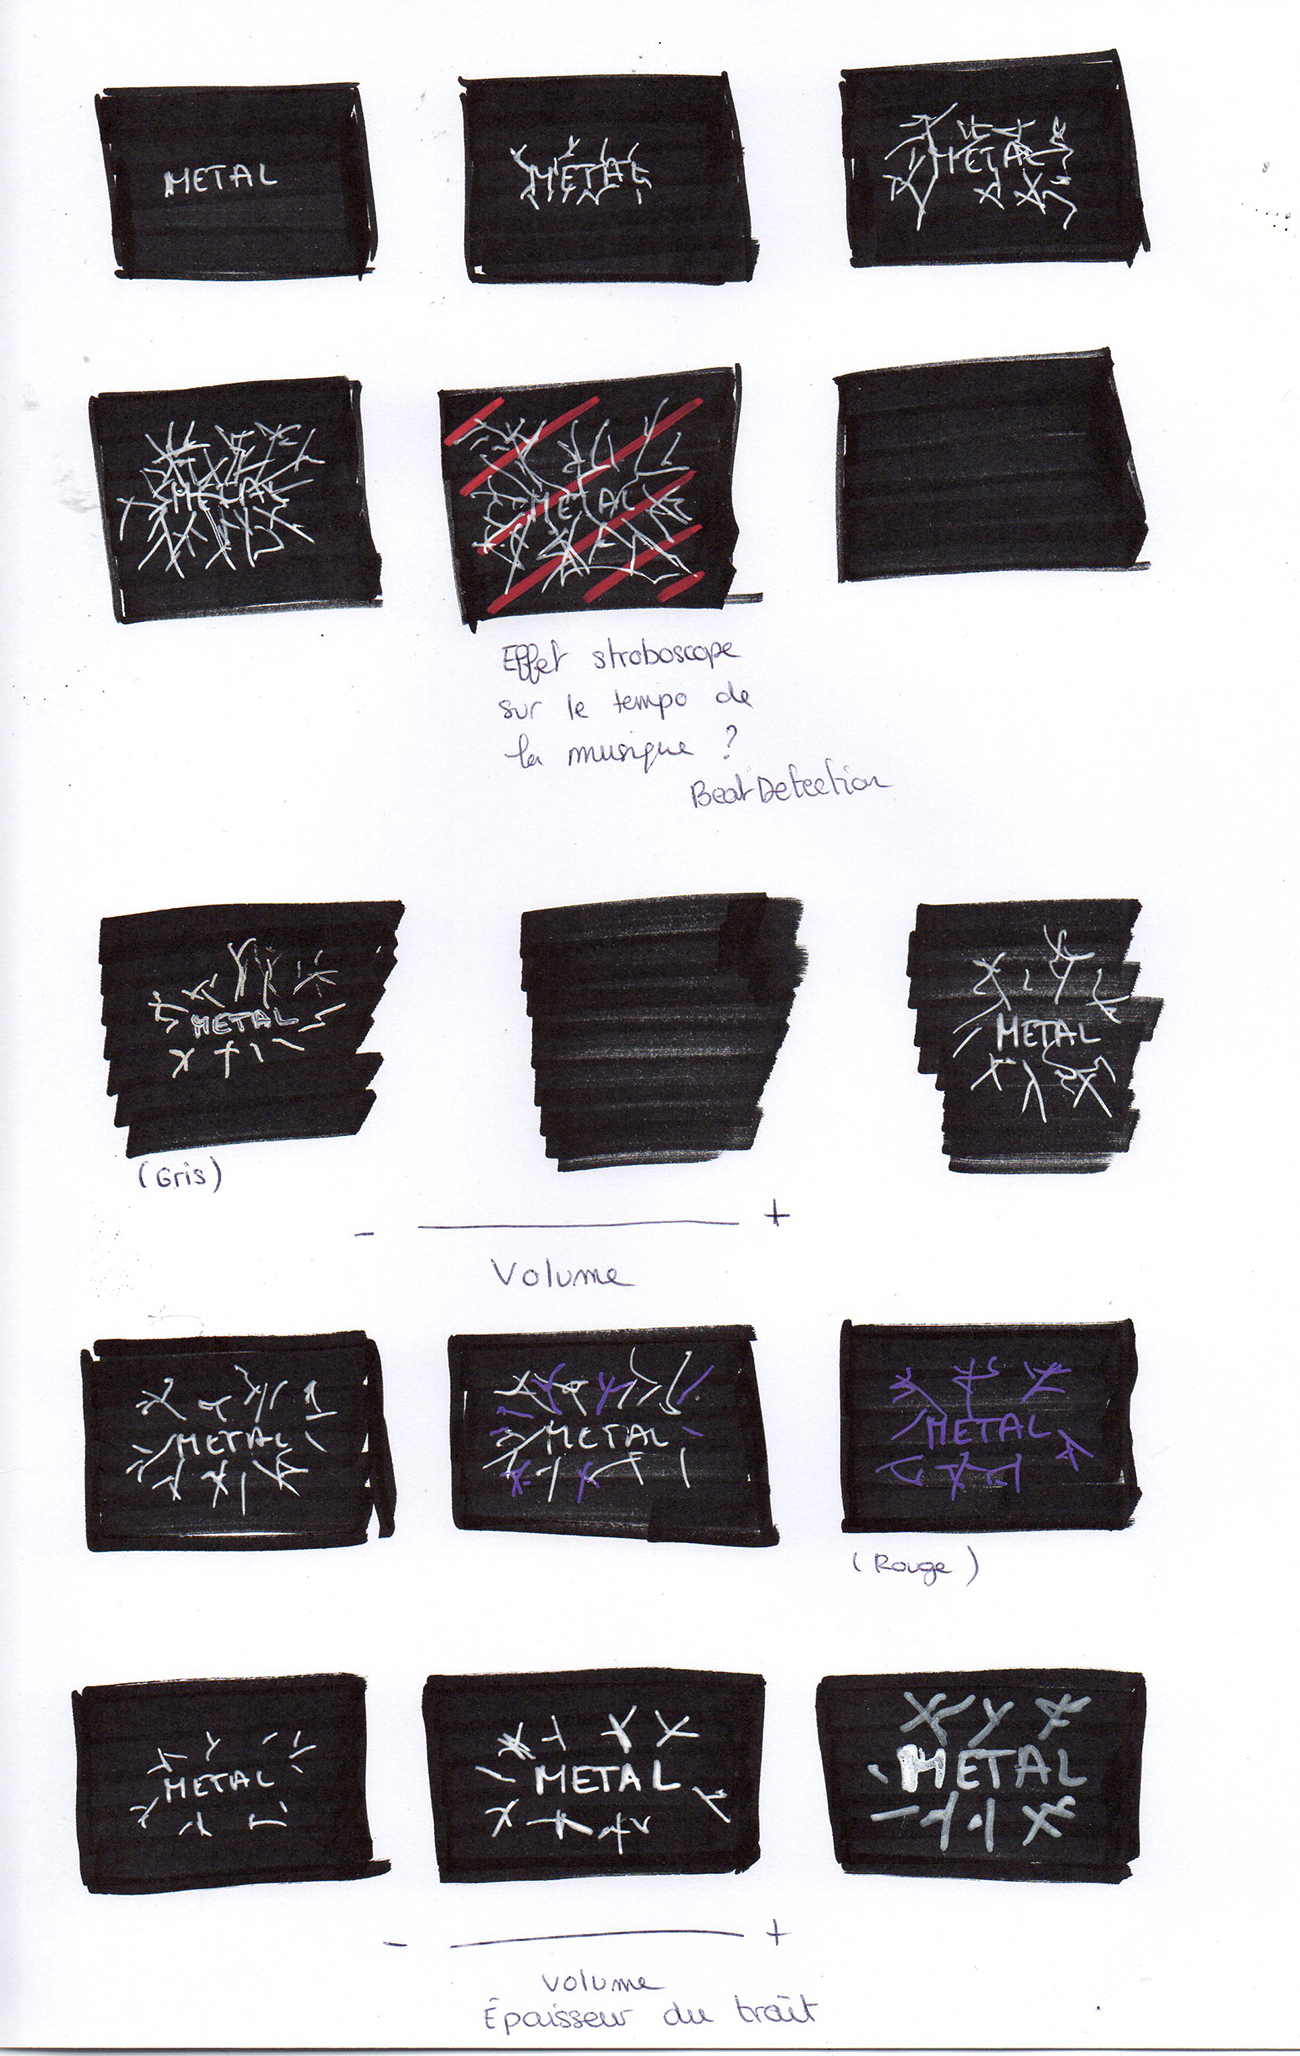 METAL
METAL
METAL
METAL
METAL
Effet stroboscope
sur le tempo de
la musique ?
BeatDetection
METAL
METAL
(Gris)
- +
Volume
METAL
METAL
METAL
(Rouge)
METAL
METAL
METAL
- +
volume
Épaisseur du traît